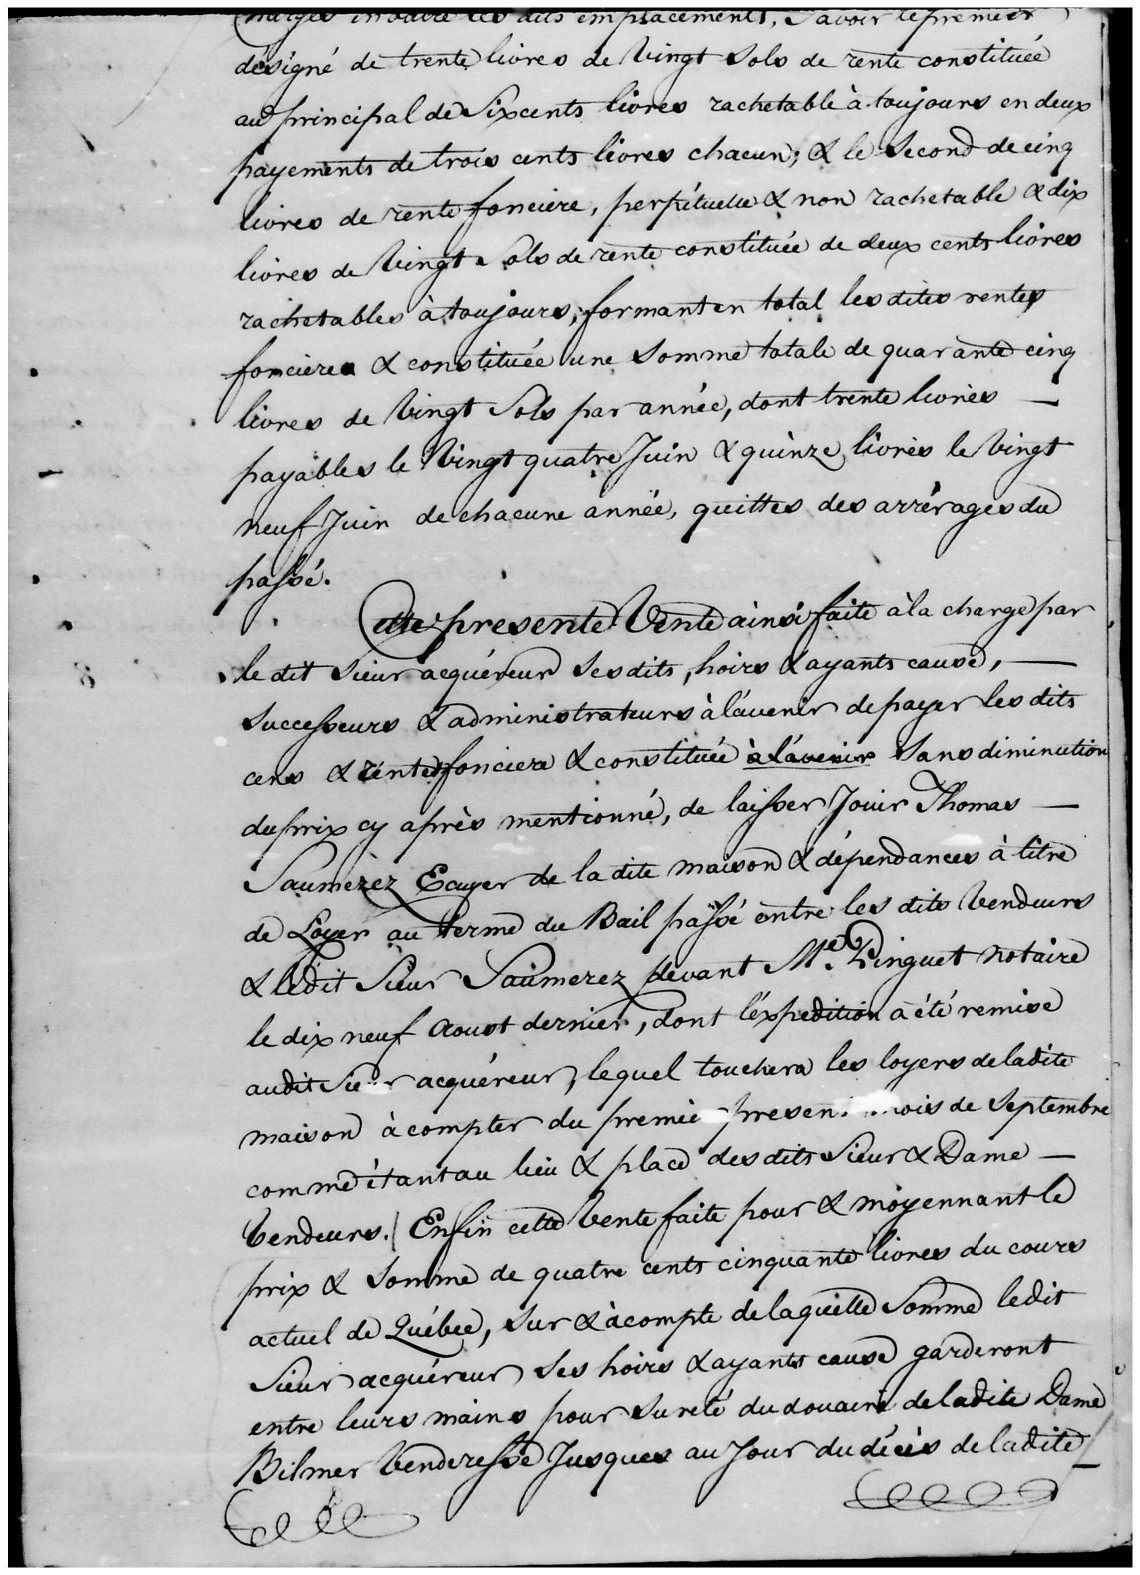 Chargés envers les dits emplacements, Savoir le premier
désigné de trente livres de Vingt Sols de rente constituée
au principal de Six cents livres rachetable à toujours en deux
payements de trois cents livres chacun; & le Second de cinq
livres de rente fonciere, perpétuelle & non rachetable & dix
livres de Vingt Sols de rente constituée de deux cents livres
rachetables à toujours, formant en total les dites rentes
foncieres & constituée une Somme totale de quarante cinq
livres de Vingt Sols par année, dont trente livres —
payables le Vingt quatre Juin & quinze livres le Vingt
neuf Juin de chacune année, quittes des arrérages du
passé.
Cette presente Vente ainsi faite à la charge par
le dit Sieur acquéreur Ses dits, hoirs & ayants cause, —
Successeurs & administrateurs à l'avenir de payer les dits
cens & rentes fonciere & constituée à l'avenir Sans diminution
du prix cy après mentionné, de laisser Jouir Thomas —
Saumerez Ecuyer de la dite maison & dépendances à titre
de Loyer au terme du Bail passé entre les dits Vendeurs
& ledit Sieur Saumerez devant Me. Pinguet Notaire
le dix neuf Aoust dernier, dont l'éxpedition a été remise
audit Sieur acquéreur, lequel touchera les loyers de ladite
maison à compter du premie present mois de Septembre
comme étant au lieu & place des dits Sieur & Dame —
Vendeurs. Enfin cette Vente faite pour & moyennant le
prix & Somme de quatre cents cinquante livres du cours
actuel de Québec, Sur & àcompte de laquelle Somme ledit
Sieur acquéreur Ses hoirs & ayants cause garderont
entre leurs mains pour Sureté du douaire de ladite Dame
Bilmer Venderesse Jusques au Jour du décès de ladite